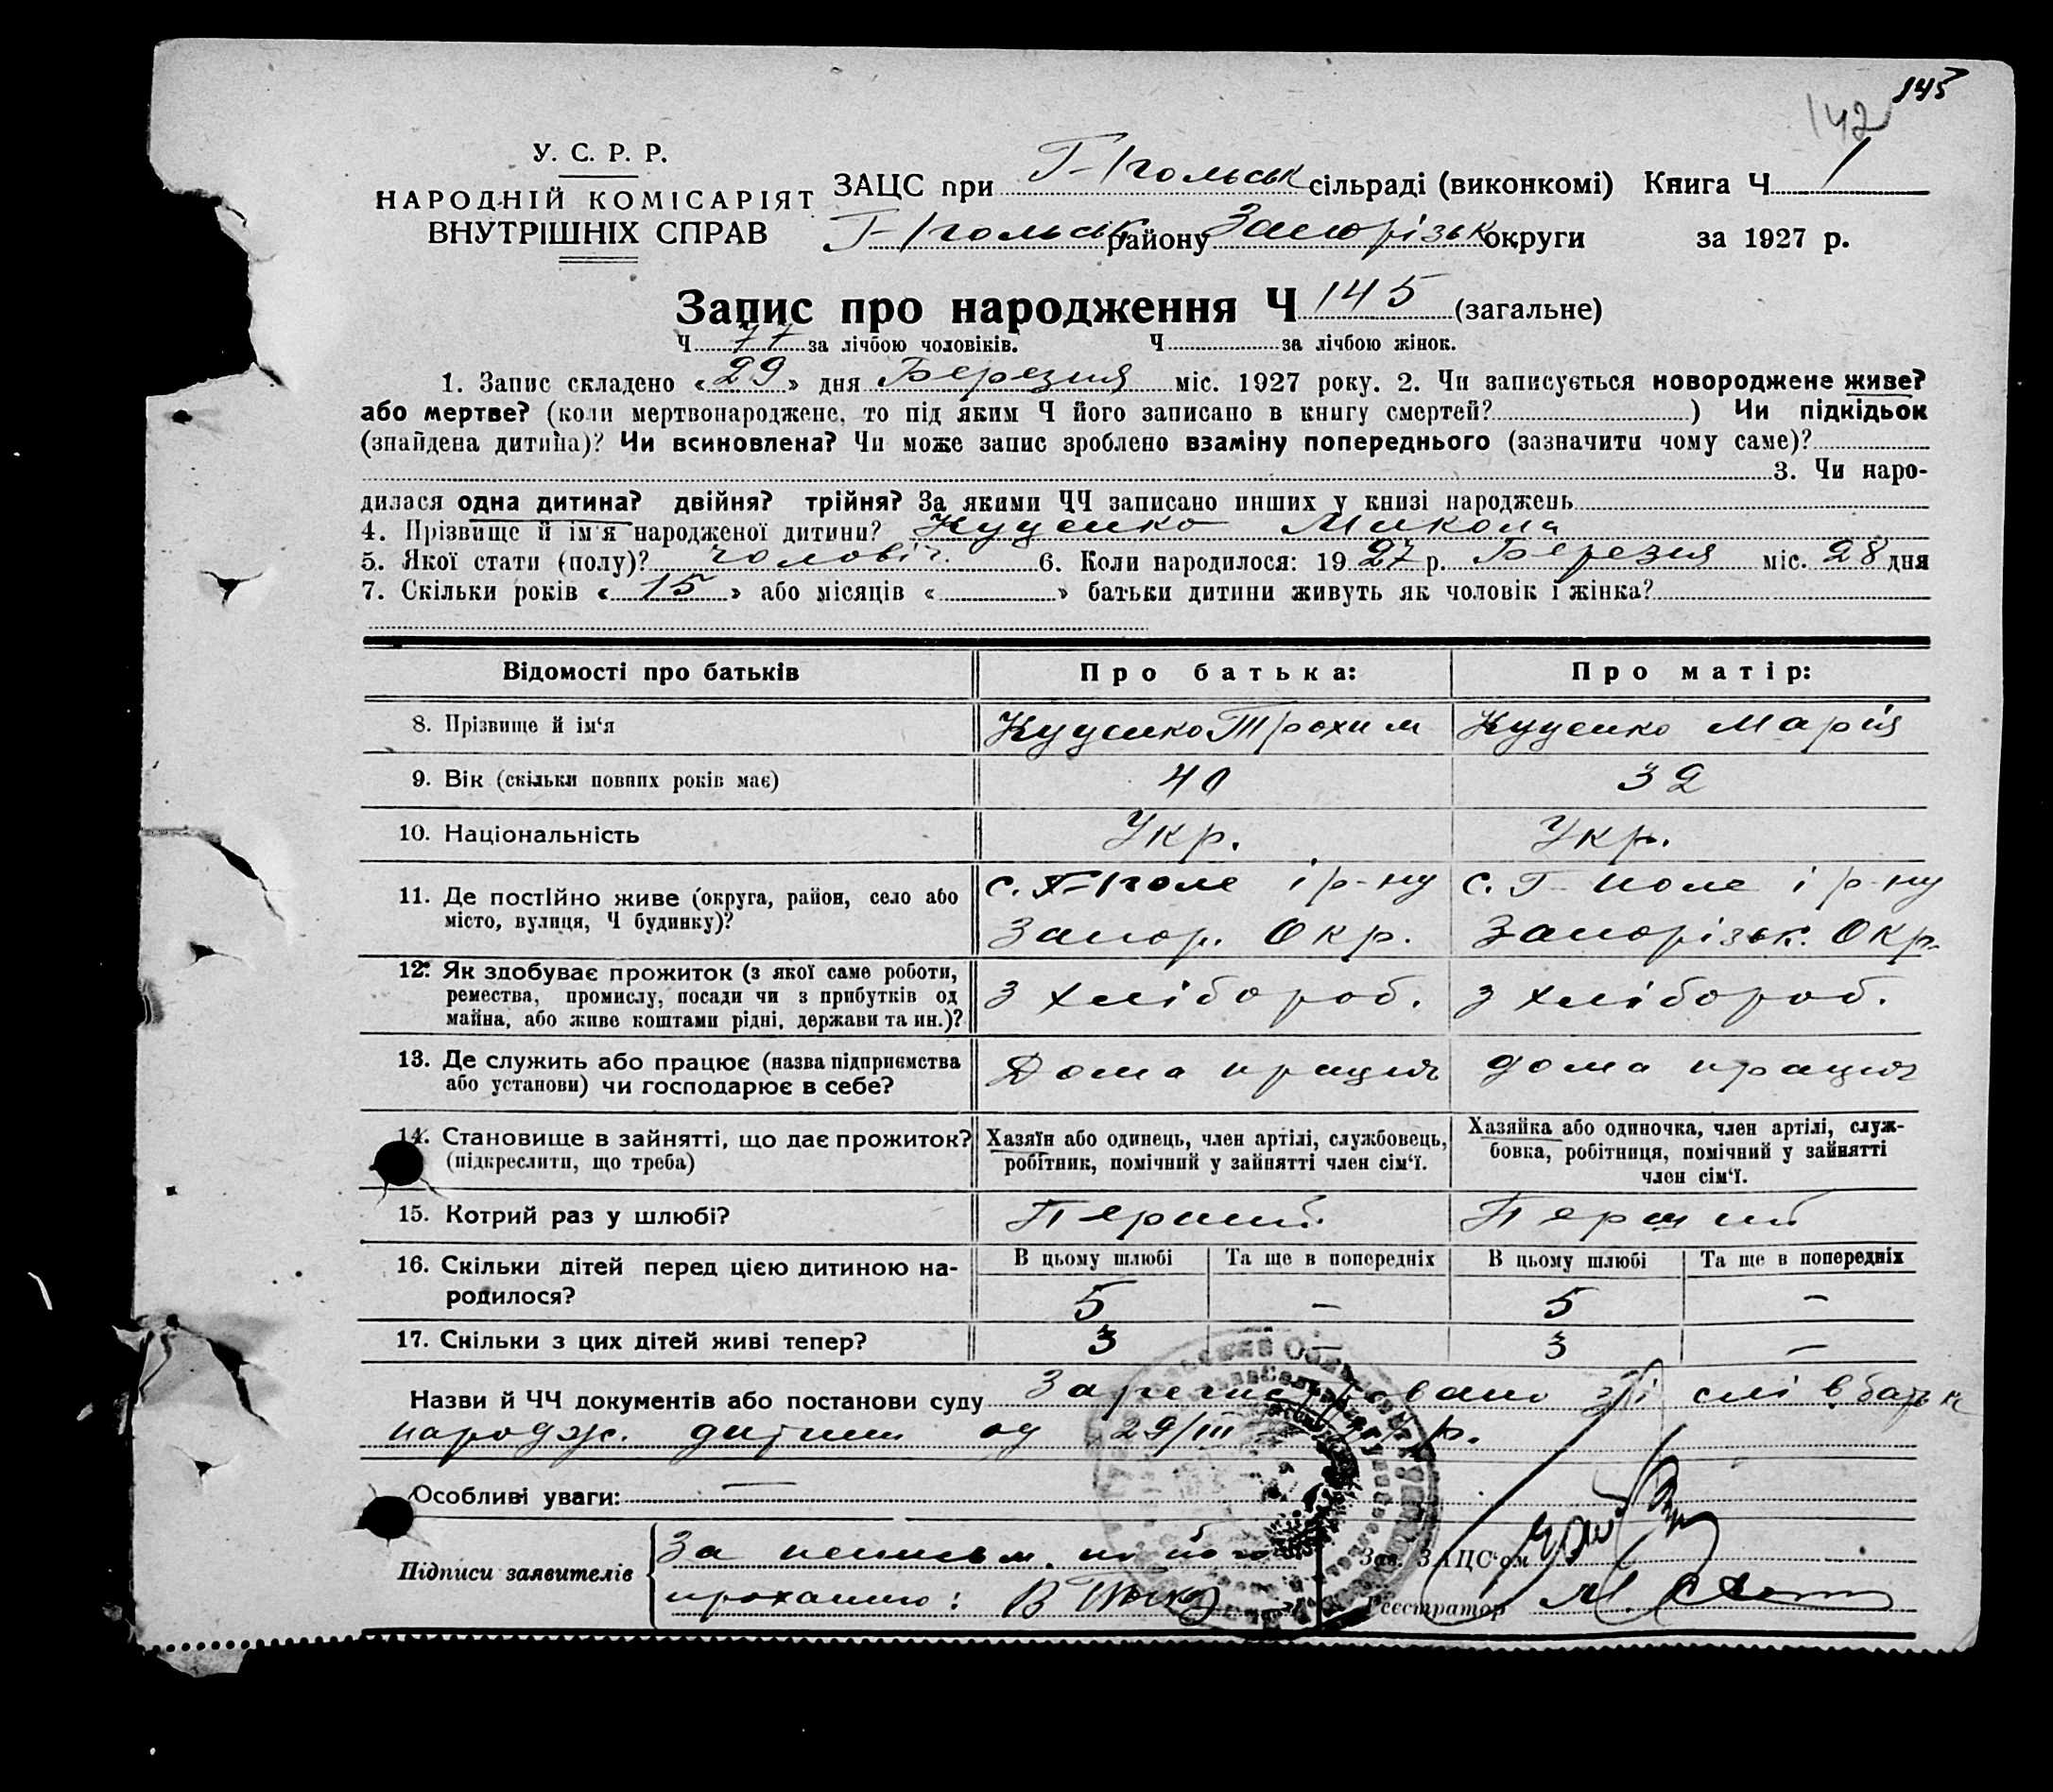 145
142
У. С. Р. Р.
НАРОДНІЙ КОМІСАРІЯТ
ВНУТРІШНІХ СПРАВ
ЗАЦС при Г-Польськ сільраді (виконкомі) Книга Ч 1
Г-Польськ району Запорізьк округи за 1927 р.
Запис про народження Ч 145 (загальне)
Ч 77 за лічбою чоловіків. Ч за лічбою жінок.
1. Запис складено « 29 » дня Березня міс. 1927 року. 2. Чи записується новороджене живе?
або мертве? (коли мертвонароджене, то під яким Ч його записано в книгу смертей? ) Чи підкідьок
(знайдена дитина)? Чи всиновлена? Чи може запис зроблено взаміну попереднього (зазначити чому саме)?
3. Чи наро-
дилася одна дитина? двійня? трійня? За якими ЧЧ записано инших у книзі народжень
4. Прізвище й ім'я народженої дитини? Куценко Микола
5. Якої стати (полу)? чоловіч. 6. Коли народилося: 1927 р. Березня міс. 28 дня
7. Скільки років « 15 » або місяців « » батьки дитини живуть як чоловік і жінка?
Відомості про батьків Про батька: Про матір:
8. Прізвище й ім'я Куценко Трохим Куценко Марія
9. Вік (скільки повних років має) 40 32
10. Національність Укр. Укр.
11. Де постійно живе (округа, район, село або с. Г-Поле і р-ну с. Г-Поле і р-ну
місто, вулиця, Ч будинку)? Запор. Окр. Запорізьк. Окр.
12. Як здобуває прожиток (з якої саме роботи,
ремества, промислу, посади чи з прибутків од з хлібороб. з хлібороб.
майна, або живе коштами рідні, держави та ин.)?
13. Де служить або працює (назва підприємства Дома працює дома працює
або установи) чи господарює в себе?
14. Становище в зайнятті, що дає прожиток? Хазяїн або одинець, член артілі, службовець, Хазяйка або одиночка, член артілі, служ-
(підкреслити, що треба) робітник, помічний у зайнятті член сім'ї. бовка, робітниця, помічний у зайнятті
член сім'ї.
15. Котрий раз у шлюбі? Перший Перший
16. Скільки дітей перед цією дитиною на- В цьому шлюбі Та ще в попередніх В цьому шлюбі Та ще в попередніх
родилося? 5 — 5 —
17. Скільки з цих дітей живі тепер? 3 — 3 —
Назви й ЧЧ документів або постанови суду Зареистровано зі слів батьк
народж. дитини од 29/III р.
Особливі уваги: —
Підписи заявителів За неписьм. по його
проханню: В
Зав. ЗАЦС'ом
Реєстратор